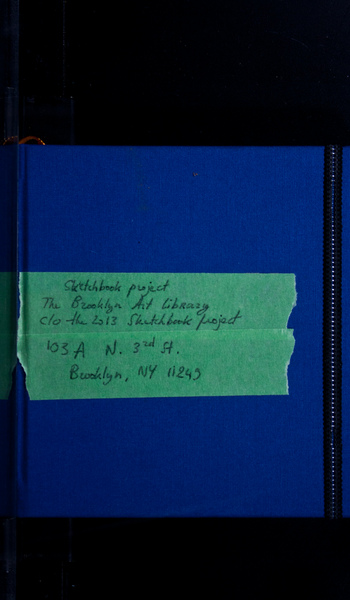 Sketchbook project
The Brooklyn Art Library
c/o the 2013 Sketchbook project
103 A N. 3rd St.
Brooklyn, NY 11249